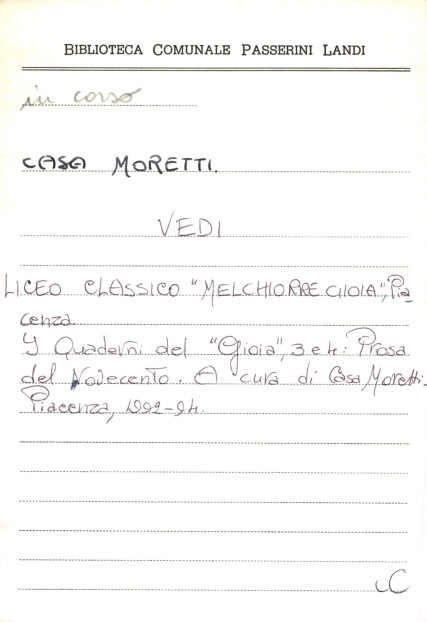 BIBLIOTECA COMUNALE PASSERINI LANDI
in corso
CASA MORETTI.
VEDI
LICEO CLASSICO "MELCHIORRE GIOIA", Pia
cenza.
I Quaderni del "Gioia", 3 e 4: Prosa
del Novecento. A cura di Casa Moretti.
Piacenza, 1992-94.